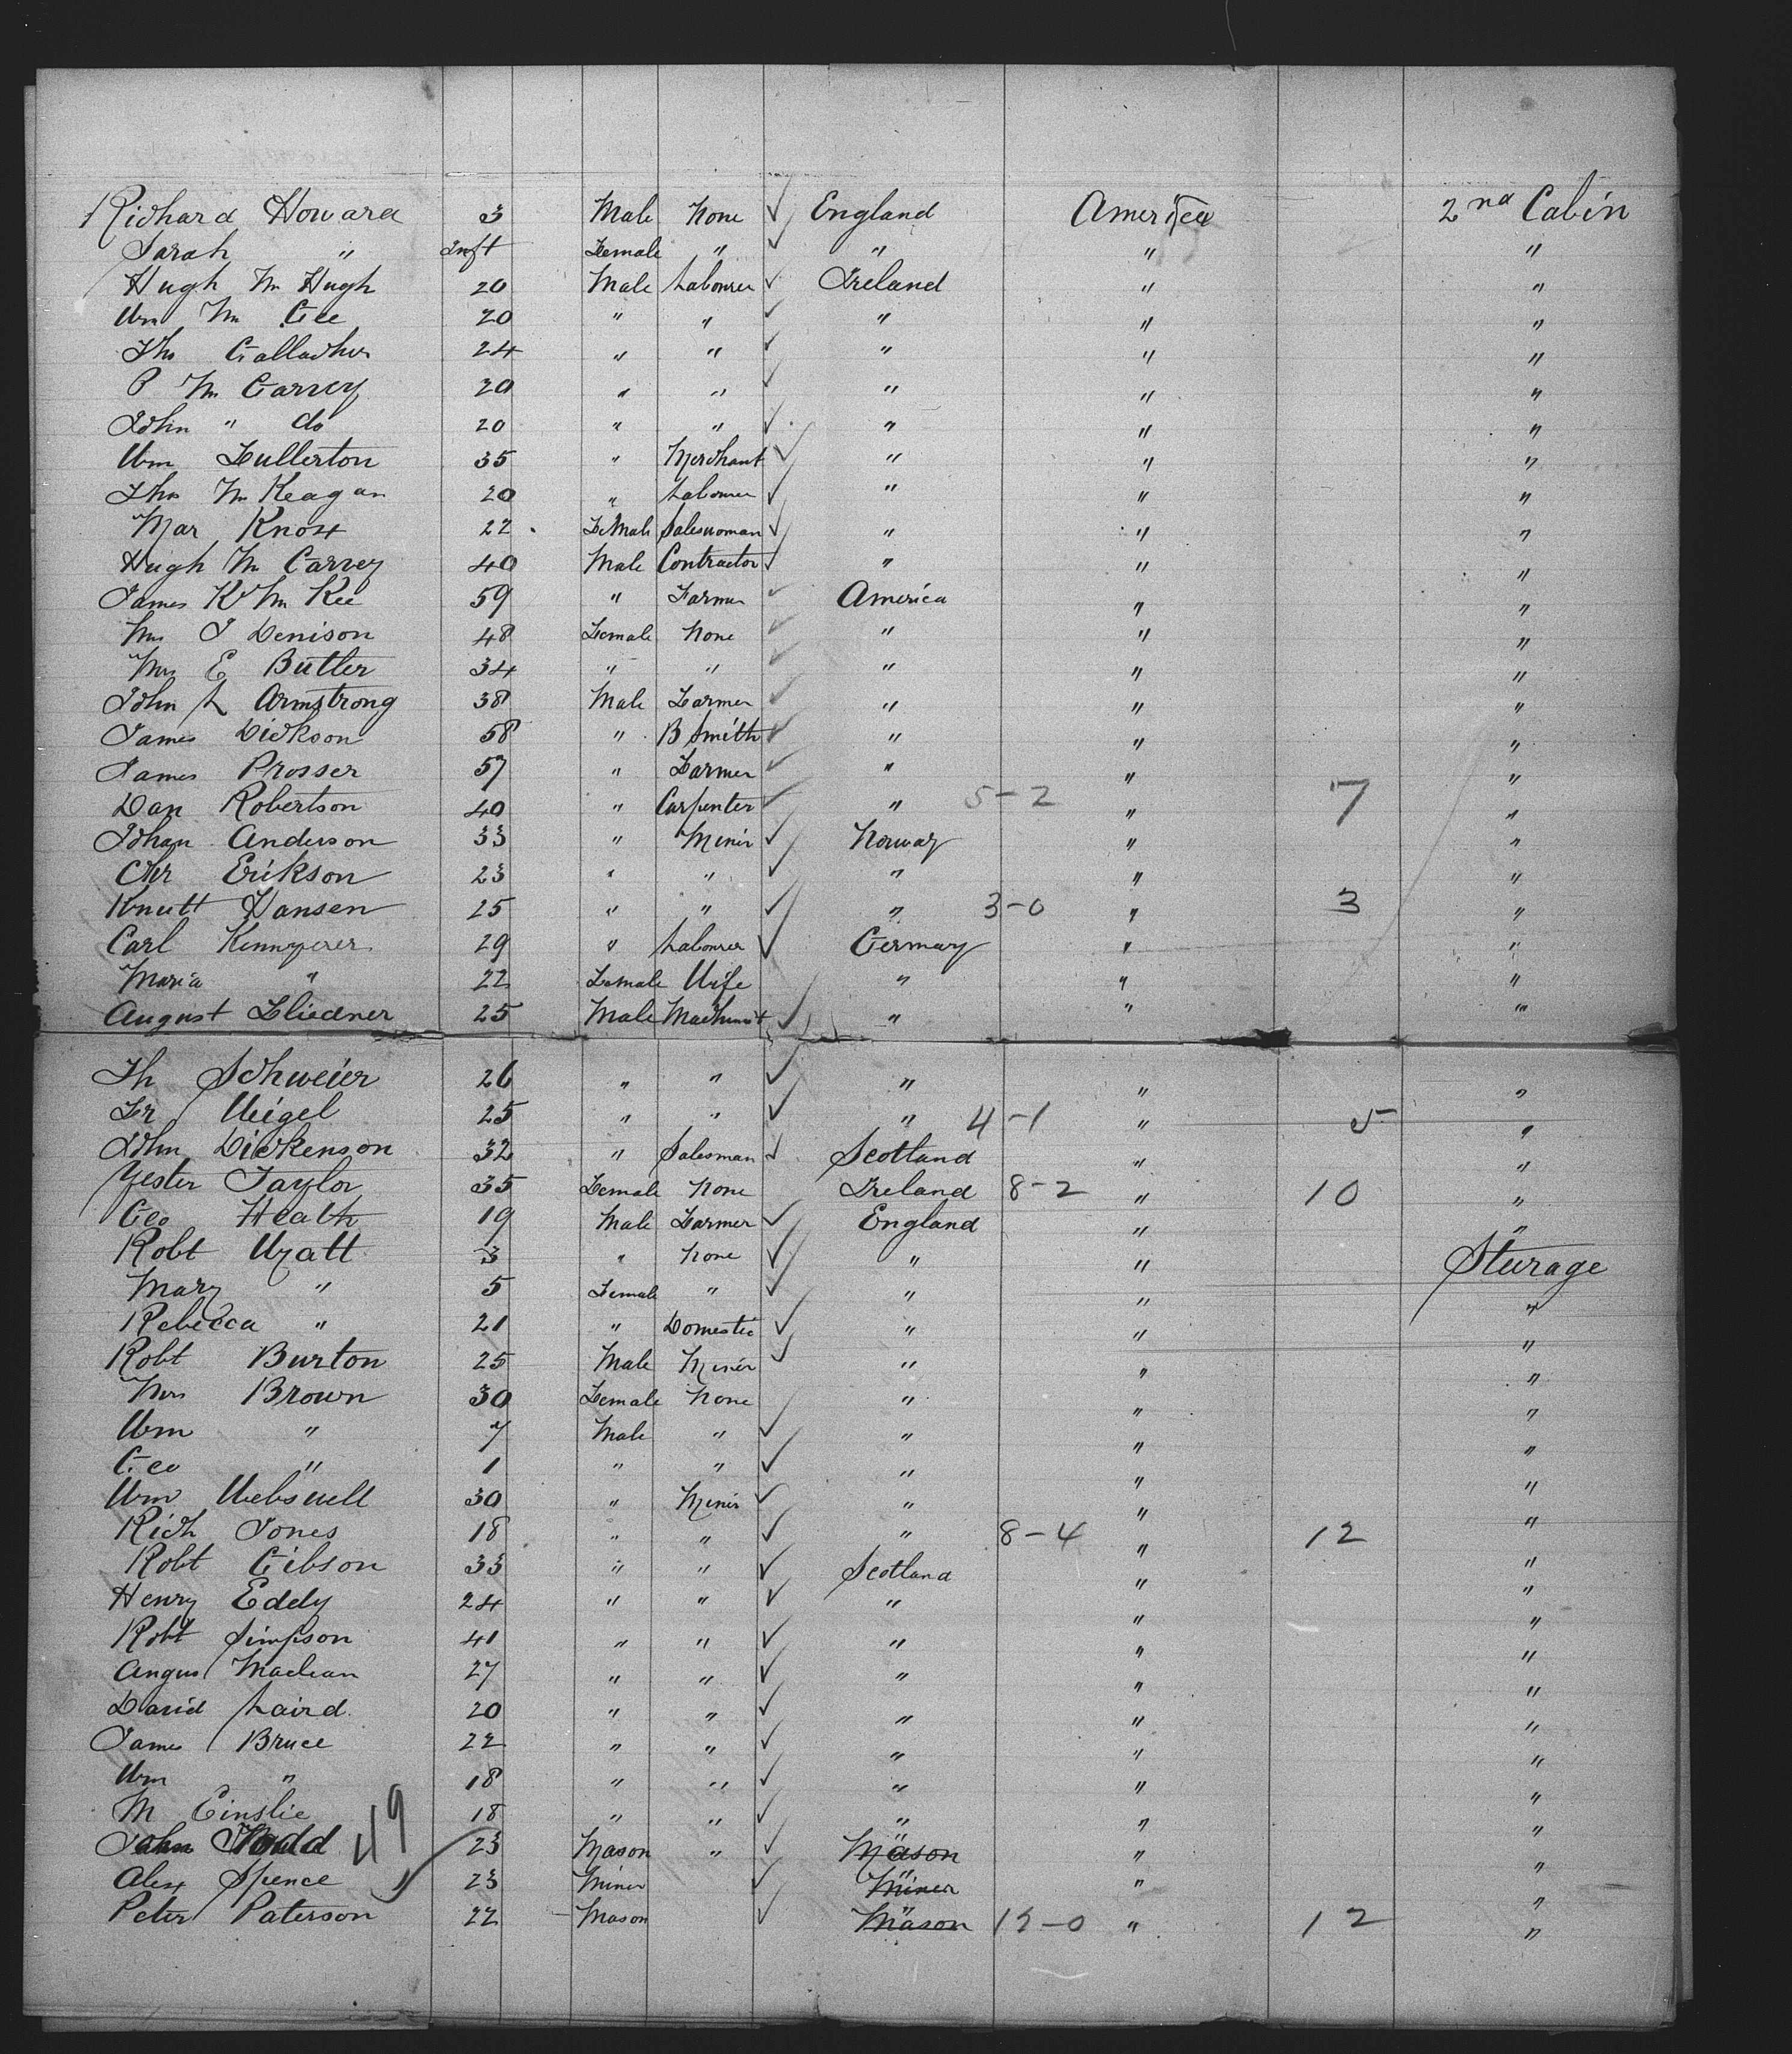 Richard Howard 3 Male None ✓ England America 2nd Cabin
Sarah " Inft Female " ✓ " " "
Hugh Mc Hugh 20 Male Labourer ✓ Ireland " "
Wm Mc Gee 20 " " ✓ " " "
Thos Gallagher 24 " " ✓ " " "
P Mc Garvey 20 " " ✓ " " "
John " do 20 " " ✓ " " "
Wm Fullerton 35 " Merchant ✓ " " "
Thos Mc Keagan 20 " Labourer ✓ " " "
Mar Knox 22 Female Saleswoman ✓ " " "
Hugh Mc Garvey 40 Male Contractor ✓ " " "
James K Mc Kee 59 " Farmer ✓ America " "
Mrs J Denison 48 Female None ✓ " " "
Mrs E Butler 34 " " ✓ " " "
John L Armstrong 38 Male Farmer ✓ " " "
James Dickson 58 " B Smith ✓ " " "
James Prosser 57 " Farmer ✓ " " "
Dan Robertson 40 " Carpenter ✓ " 5-2 " 7 "
Johan Anderson 33 " Miner ✓ Norway " "
Chr Erikson 23 " " ✓ " " "
Knutt Hansen 25 " " ✓ " 3-0 " 3 "
Carl 29 " Labourer ✓ Germany " "
Maria " 22 Female Wife " " "
August Fliedner 25 Male Machinist ✓ " " "
Th Schweier 26 " " ✓ " " "
Fr Weigel 25 " " ✓ " 4-1 " 5 "
John Dickenson 32 " Salesman ✓ Scotland " "
Yester Taylor 35 Female None Ireland 8-2 " 10 "
Geo Heath 19 Male Farmer ✓ England " "
Robt Wyatt 3 " None ✓ " " Steerage
Mary " 5 Female " ✓ " " "
Rebecca " 21 " Domestic ✓ " " "
Robt Burton 25 Male Miner ✓ " " "
Mrs Brown 30 Female None " " "
Wm " 7 Male " ✓ " " "
Geo " 1 " " ✓ " " "
Wm 30 " Miner ✓ " " "
Rich Jones 18 " " ✓ " 8-4 " 12 "
Robt Gibson 33 " " ✓ Scotland " "
Henry Eddy 24 " " ✓ " " "
Robt Simpson 41 " " ✓ " " "
Angus Maclean 27 " " ✓ " " "
David Laird 20 " " ✓ " " "
James Bruce 22 " " ✓ " " "
Wm " 18 " " ✓ " " "
M Einslie 18 " " ✓ " " "
John Todd 49 23 Mason " ✓ Mason " "
Alex Spence 23 Miner ✓ Miner " "
Peter Paterson 22 Mason ✓ Mason 12-0 " 12 "